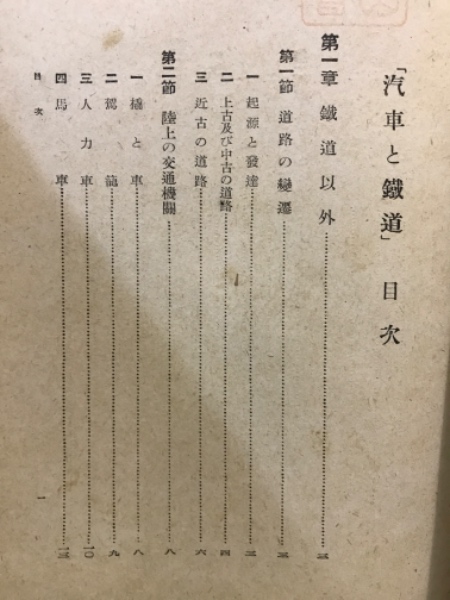 「汽車と鐵道」目次
第一章 鐵道以外………三
第一節 道路の變遷………三
一 起源と發達………三
二 上古及び中古の道路………四
三 近古の道路………六
第二節 陸上の交通機關………八
一 橇と車………八
二 駕籠………九
三 人力車………一〇
四 馬車………一三
目次
一